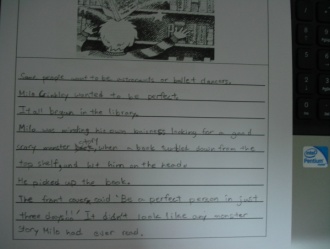 Some people want to be astronauts or ballet dancers.
Milo Crinkley wanted to be perfect.
It all began in the library.
Milo was minding his own business looking for a good
story
scary monster book, when a book tumbled down from the
top shelf and hit him on the head.
He picked up the book.
The front cover said 'Be a perfect person in just
three days!' It didn't look like any monster
story Milo had ever read.
intel
Pentium
inside